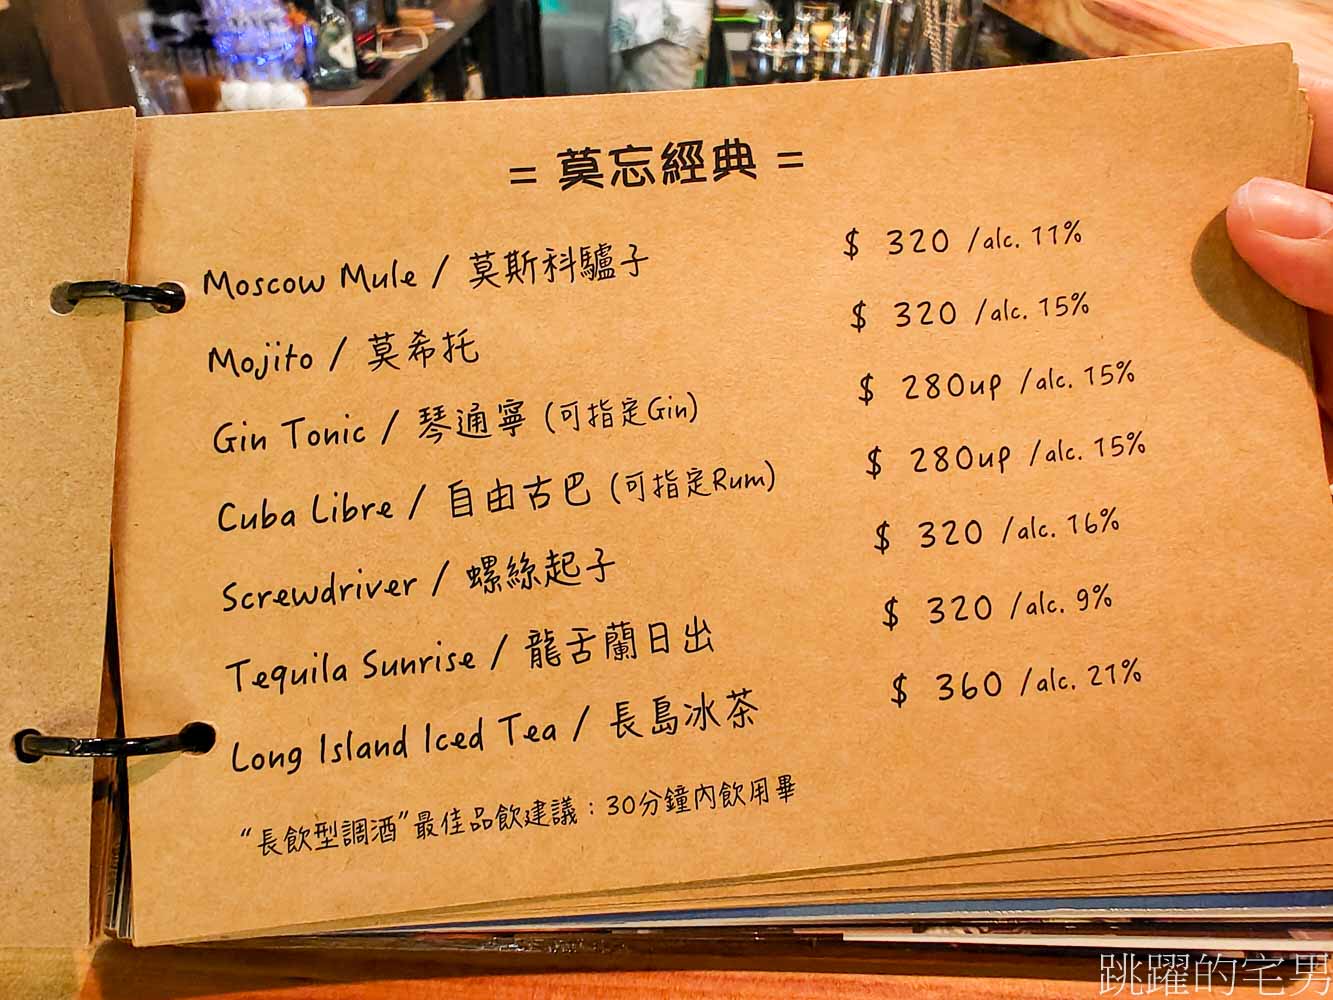 = 莫忘經典 =
Moscow Mule / 莫斯科驢子 $ 320 /alc. 11%
Mojito / 莫希托 $ 320 /alc. 15%
Gin Tonic / 琴通寧 (可指定Gin) $ 280up /alc. 15%
Cuba Libre / 自由古巴 (可指定Rum) $ 280up /alc. 15%
Screwdriver / 螺絲起子 $ 320 /alc. 16%
Tequila Sunrise / 龍舌蘭日出 $ 320 /alc. 9%
Long Island Iced Tea / 長島冰茶 $ 360 /alc. 21%
“長飲型調酒”最佳品飲建議：30分鐘內飲用畢
跳躍的宅男